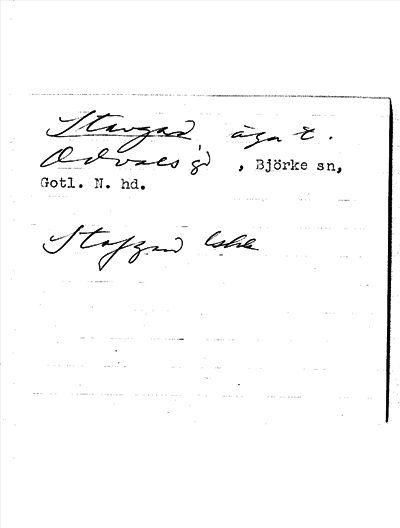 Stavgard, äga t.
Odvalls gd, Björke sn,
Gotl. N. hd.
Stafgard